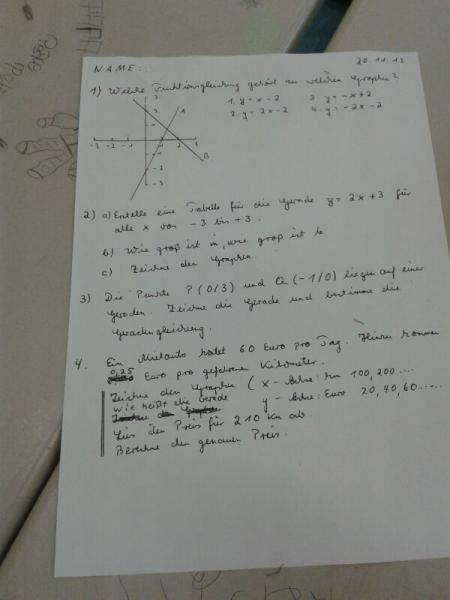 NAME: 20.11.13
1) Welche Funktionsgleichung gehört zu welchem Graphen?
1. y = x - 2 3. y = -x + 2
2. y = 2x - 2 4. y = -2x - 2
3
A
-3 -2 -1 1 2 3
B
-2
-3
2) a) Erstelle eine Tabelle für die Gerade y = 2x + 3 für
alle x von -3 bis +3.
b) Wie groß ist m, wie groß ist b
c) Zeichne den Graphen.
3) Die Punkte P (0/3) und Q (-1/0) liegen auf einer
Geraden. Zeichne die Gerade und bestimme die
Geradengleichung.
4. Ein Mietauto kostet 60 Euro pro Tag. Hinzu kommen
0,25 Euro pro gefahrenen Kilometer.
Zeichne den Graphen (x - Achse: km 100, 200...
Wie heißt die Gerade y - Achse: Euro 20, 40, 60.....
Lies den Preis für 210 km ab.
Berechne den genauen Preis.